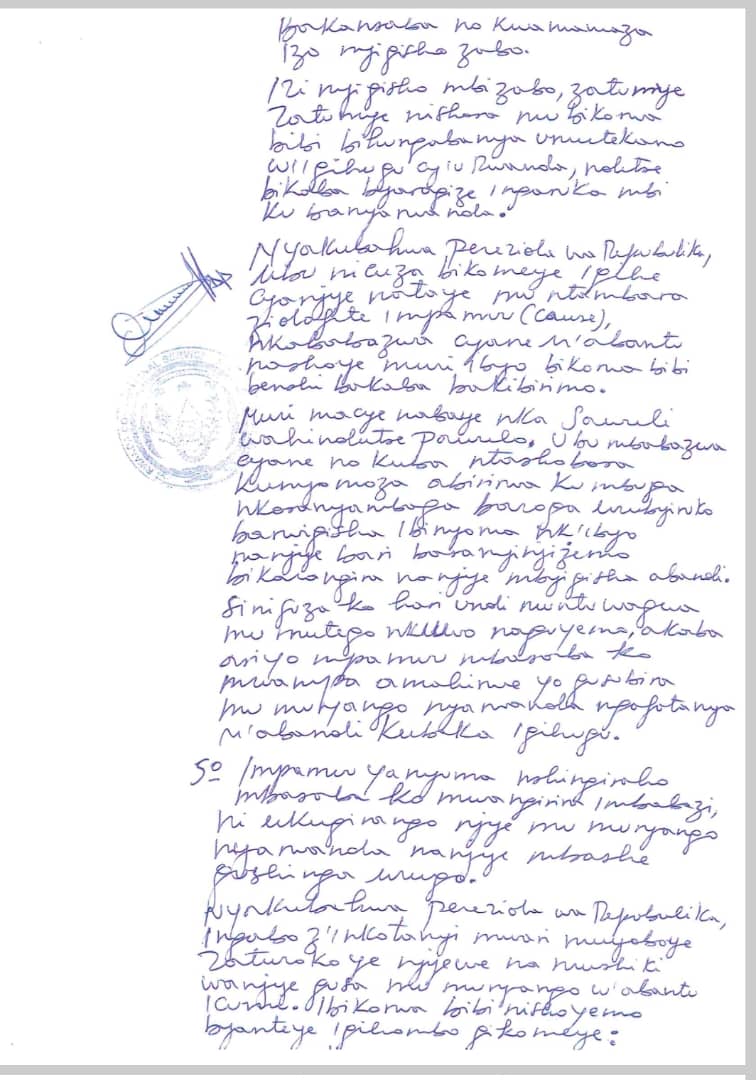 bakansaba no kwamamaza
izo nyigisho zabo.
Izi nyigisho mbi zabo, zatumye
zatumye nishora mu bikorwa
bibi bihungabanya umutekano
w'igihugu cy'u Rwanda, ndetse
bikaba byaragize ingaruka mbi
ku banyarwanda.
Nyakubahwa Perezida wa Repubulika,
ubu nicuza bikomeye igihe
cyanjye nataye mu ntambara
zidafite impamvu (cause),
nkababazwa cyane n'abantu
nashoye muri ibyo bikorwa bibi
benshi bakaba bakibirimo.
Muri macye nabaye nka Sawuli
wahindutse Pawulo. Ubu mbabazwa
cyane no kuba ntashobora
kunyomoza abirirwa ku mbuga
nkoranyambaga baroga urubyiruko
barwigisha ibinyoma nk'ibyo
nanjye bari baranyinjijemo
bikarangira nanjye mbyigisha abandi.
Sinifuza ko hari undi muntu wagwa
mu mutego nk'uwo naguyemo, akaba
ariyo mpamvu mbasaba ko
mwampa amahirwe yo gusubira
mu muryango nyarwanda ngafatanya
n'abandi kubaka igihugu.
5º Impamvu ya nyuma nshingiraho
mbasaba ko mwangirira imbabazi,
ni ukugirango njye mu muryango
nyarwanda nanjye mbashe
gushinga urugo.
Nyakubahwa Perezida wa Repubulika,
Ingabo z'Inkotanyi mwari muyoboye
zarokoye njyewe na mushiki
wanjye gusa mu muryango w'abantu
icumi. Ibikorwa bibi nishoyemo
byanteye igihombo gikomeye: